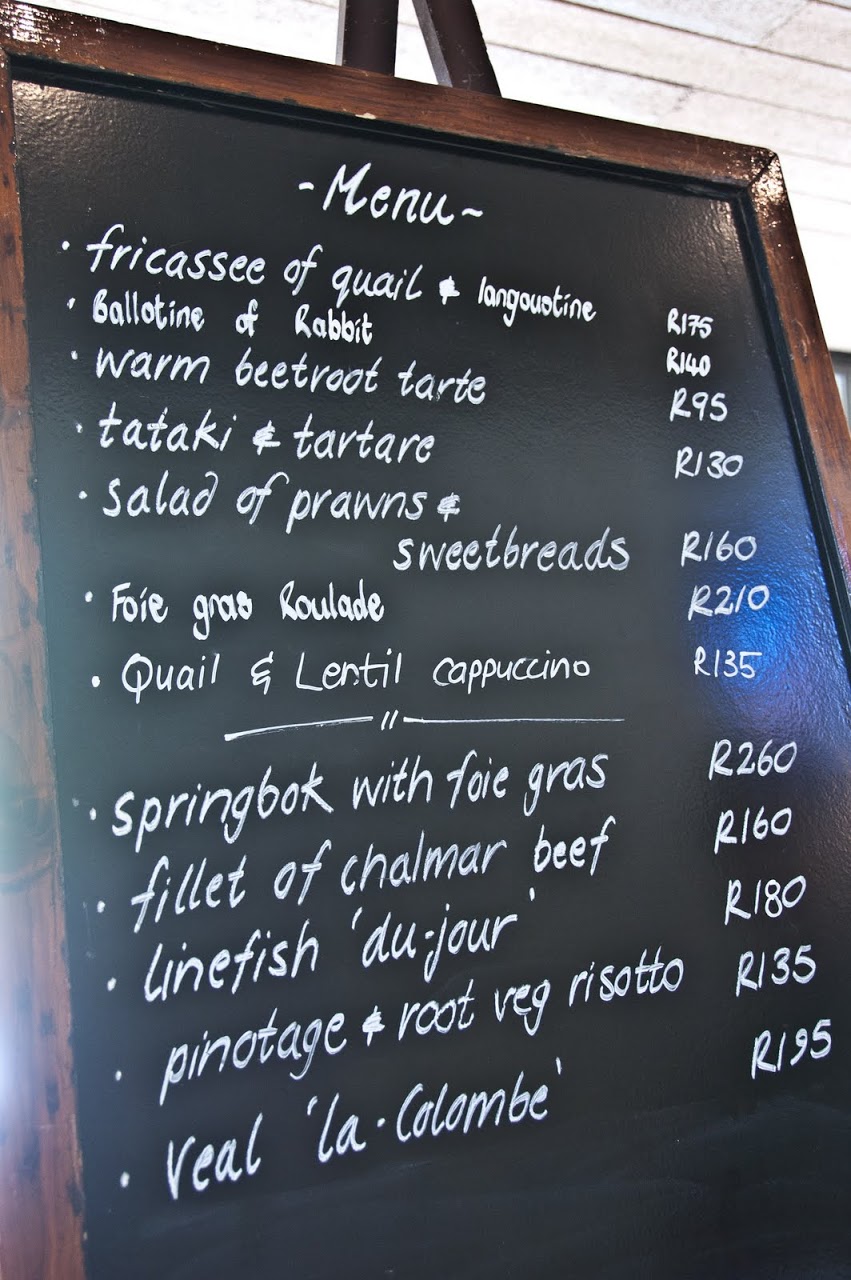 -Menu~
· fricassee of quail & langoustine R175
· Ballotine of Rabbit R140
· warm beetroot tarte R95
· tataki & tartare R130
· Salad of prawns &
sweetbreads R160
· Foie gras Roulade R210
· Quail & Lentil cappuccino R135
"
· springbok with foie gras R260
· fillet of chalmar beef R160
· linefish 'du·jour' R180
· pinotage & root veg risotto R135
· Veal 'la·Colombe' R195